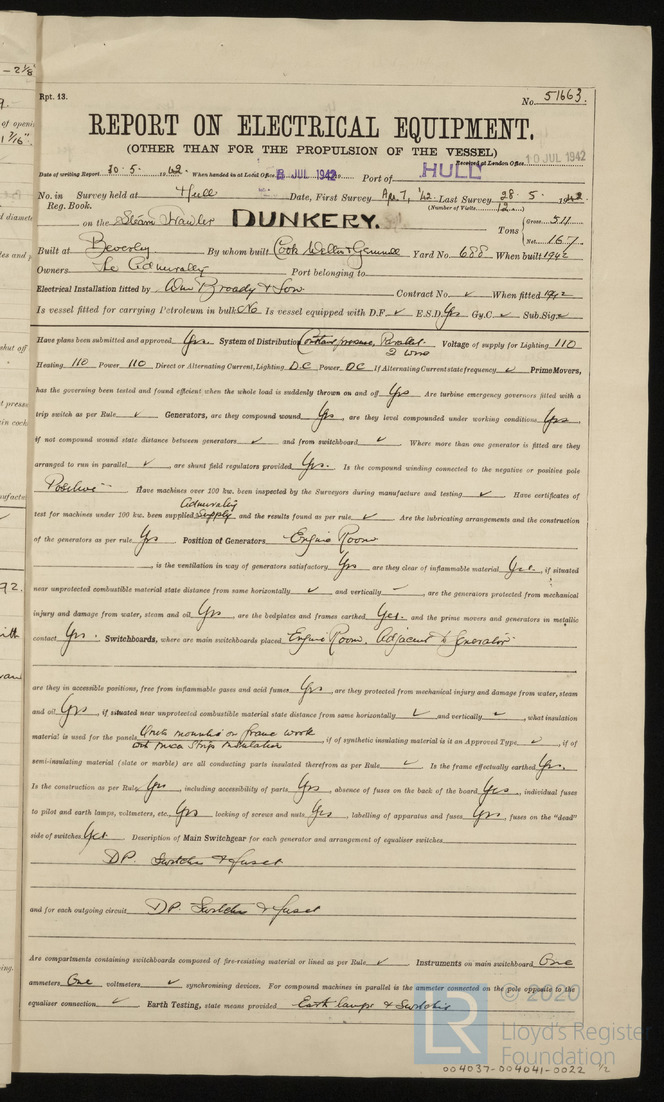 – 2⅛
Rpt. 13.
No. 51663.
REPORT ON ELECTRICAL EQUIPMENT.
(OTHER THAN FOR THE PROPULSION OF THE VESSEL)
Received at London Office 10 JUL 1942
Date of writing Report 30·5·1942. When handed in at Local Office JUL 1942 Port of HULL
No. in Survey held at Hull Date, First Survey Apr. 7, '42. Last Survey 28·5·1942
Reg. Book. (Number of Visits 12)
on the Steam Trawler DUNKERY. Tons { Gross 511
Net 167
Built at Beverley By whom built Cook Welton & Gemmell Yard No. 688 When built 1942
Owners The Admiralty Port belonging to
Electrical Installation fitted by Wm Broady & Son Contract No. ✓ When fitted 1942
Is vessel fitted for carrying Petroleum in bulk No Is vessel equipped with D.F. ✓ E.S.D. Yes Gy.C. ✓ Sub.Sig. ✓
Have plans been submitted and approved Yes. System of Distribution Constant pressure, Parallel 2 wire Voltage of supply for Lighting 110
Heating 110 Power 110 Direct or Alternating Current, Lighting DC Power DC If Alternating Current state frequency ✓ Prime Movers,
has the governing been tested and found efficient when the whole load is suddenly thrown on and off Yes Are turbine emergency governors fitted with a
trip switch as per Rule ✓ Generators, are they compound wound Yes, are they level compounded under working conditions Yes,
if not compound wound state distance between generators ✓ and from switchboard ✓ Where more than one generator is fitted are they
arranged to run in parallel ✓, are shunt field regulators provided Yes. Is the compound winding connected to the negative or positive pole
Positive Have machines over 100 kw. been inspected by the Surveyors during manufacture and testing ✓ Have certificates of
test for machines under 100 kw. been supplied Admiralty Supply and the results found as per rule ✓ Are the lubricating arrangements and the construction
of the generators as per rule Yes Position of Generators Engine Room
, is the ventilation in way of generators satisfactory Yes are they clear of inflammable material Yes, if situated
near unprotected combustible material state distance from same horizontally ✓ and vertically –, are the generators protected from mechanical
injury and damage from water, steam and oil Yes, are the bedplates and frames earthed Yes and the prime movers and generators in metallic
contact Yes. Switchboards, where are main switchboards placed Engine Room, Adjacent to Generator
are they in accessible positions, free from inflammable gases and acid fumes Yes, are they protected from mechanical injury and damage from water, steam
and oil Yes, if situated near unprotected combustible material state distance from same horizontally ✓ and vertically ✓, what insulation
material is used for the panels Units mounted on frame work with mica strip insulation, if of synthetic insulating material is it an Approved Type ✓, if of
semi-insulating material (slate or marble) are all conducting parts insulated therefrom as per Rule ✓ Is the frame effectually earthed Yes.
Is the construction as per Rule Yes, including accessibility of parts Yes, absence of fuses on the back of the board Yes, individual fuses
to pilot and earth lamps, voltmeters, etc., Yes locking of screws and nuts Yes, labelling of apparatus and fuses Yes, fuses on the "dead"
side of switches Yes Description of Main Switchgear for each generator and arrangement of equaliser switches
DP. Switches & fuses
and for each outgoing circuit DP. Switches & fuses
Are compartments containing switchboards composed of fire-resisting material or lined as per Rule ✓ Instruments on main switchboard One
ammeters One voltmeters ✓ synchronising devices. For compound machines in parallel is the ammeter connected on the pole opposite to the
equaliser connection ✓ Earth Testing, state means provided Earth lamps & Switches
LR © 2020
Lloyd's Register
Foundation
004037-004041-0022 1/2